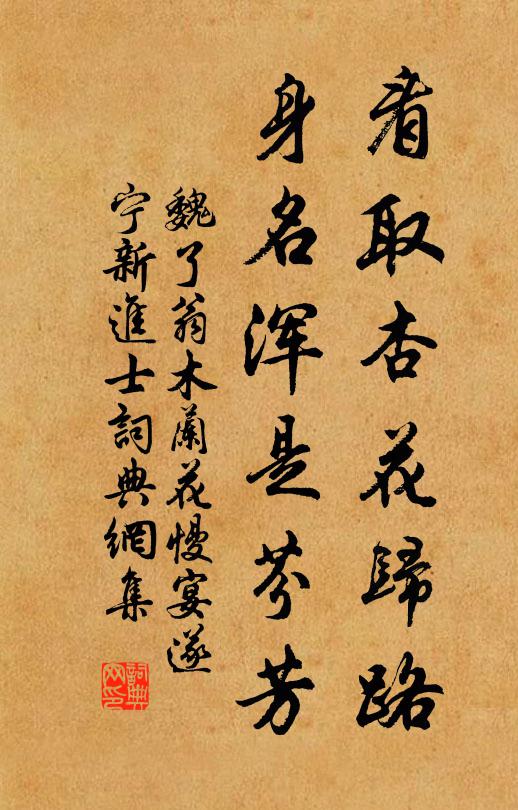 看取杏花歸路
身名浑是芬芳
魏了翁木蘭花慢宴遂
宁新進士詞典網集
詞典
网印